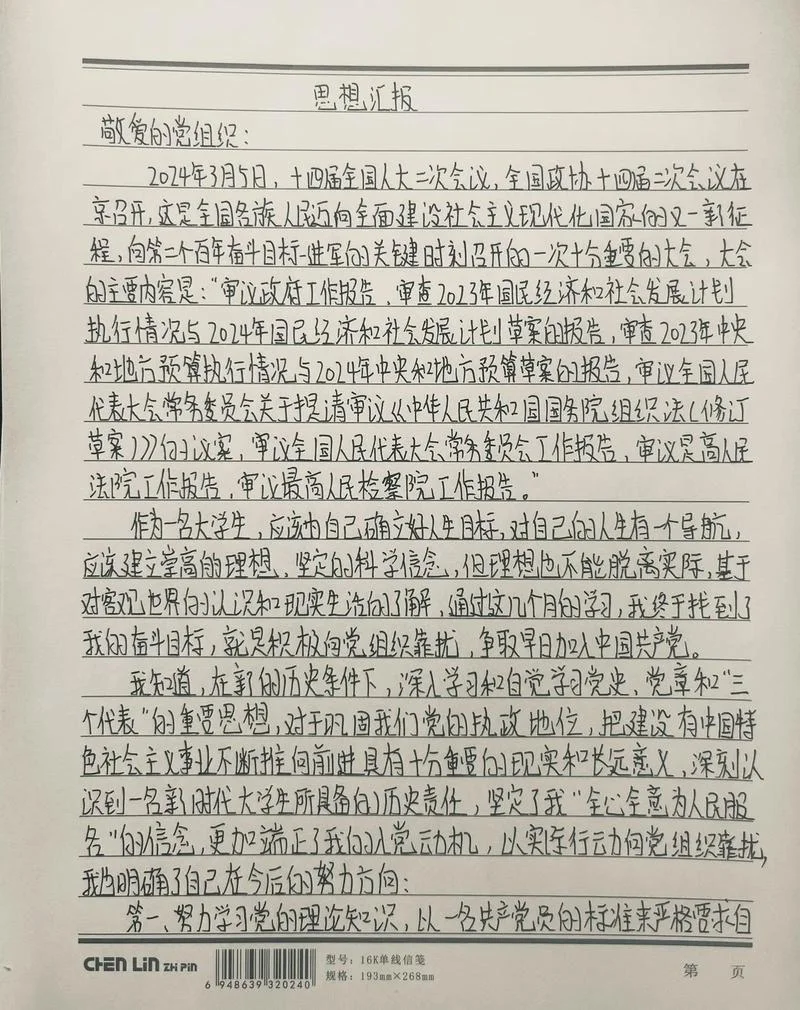 思想汇报
敬爱的党组织：
2024年3月5日，十四届全国人大二次会议，全国政协十四届二次会议在
京召开，这是全国各族人民迈向全面建设社会主义现代化国家的又一新征
程，向第二个百年奋斗目标进军的关键时刻召开的一次十分重要的大会，大会
的主要内容是：“审议政府工作报告，审查2023年国民经济和社会发展计划
执行情况与2024年国民经济和社会发展计划草案的报告，审查2023年中央
和地方预算执行情况与2024年中央和地方预算草案的报告，审议全国人民
代表大会常务委员会关于提请审议《中华人民共和国国务院组织法（修订
草案）》的议案，审议全国人民代表大会常务委员会工作报告，审议是高人民
法院工作报告，审议最高人民检察院工作报告。”
作为一名大学生，应该为自己确立好人生目标，对自己的人生有一个导航，
应该建立崇高的理想、坚定的科学信念，但理想也不能脱离实际，基于
对客观世界的认识和现实生活的了解，通过这几个月的学习，我终于找到了
我的奋斗目标，就是积极向党组织靠扰，争取早日加入中国共产党。
我知道，在新的历史条件下，深入学习和自觉学习党史、党章和“三
个代表”的重要思想，对于巩固我们党的执政地位，把建设有中国特
色社会主义事业不断推向前进具有十分重要的现实和长远意义，深刻认
识到一名新时代大学生所具备的历史责任，坚定了我“全心全意为人民服
务”的信念，更加端正了我的入党动机，以实际行动向党组织靠扰，
我为明确了自己在今后的努力方向：
第一、努力学习党的理论知识，以一名共产党员的标准来严格要求自
CHEN LIN ZHI PIN
6 948639 320240
型号：16K单线信笺
规格：193mm×268mm
第 页